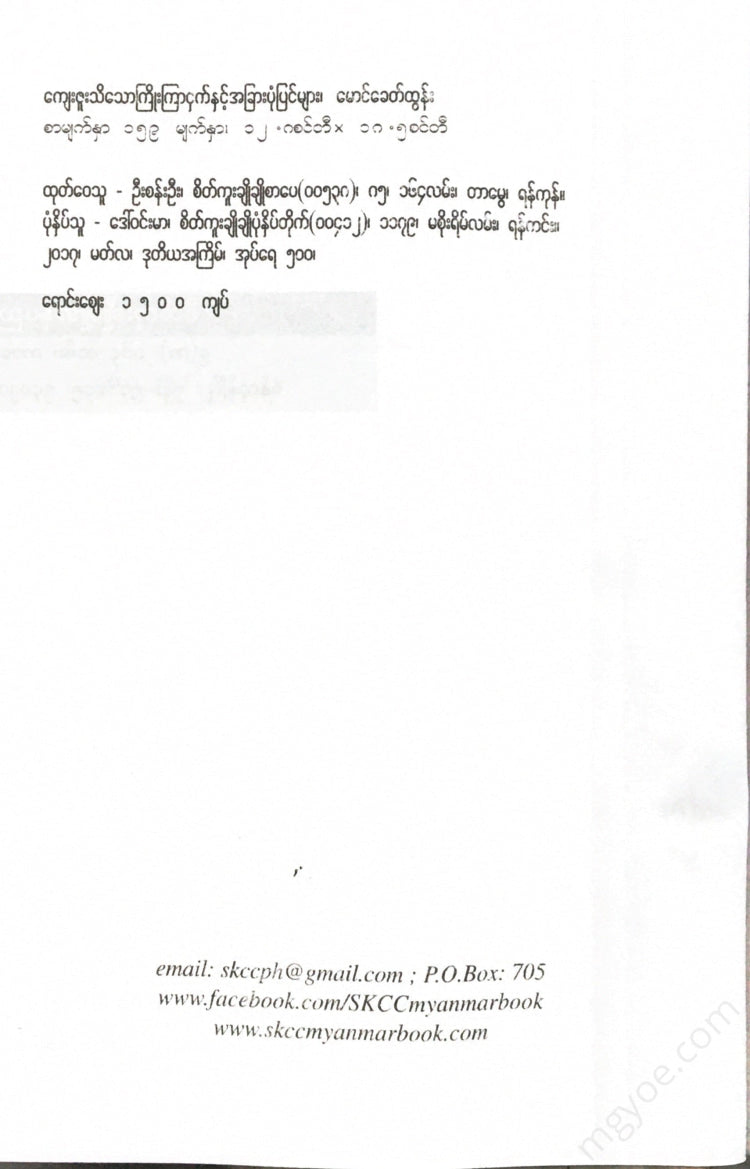 ကျေးဇူးသိသောကြိုးကြာငှက်နှင့်အခြားပုံပြင်များ၊ မောင်ခေတ်ထွန်း
စာမျက်နှာ ၁၅၉ မျက်နှာ၊ ၁၂ . ၈စင်တီ × ၁၈ . ၅စင်တီ
ထုတ်ဝေသူ - ဦးစန်းဦး၊ စိတ်ကူးချိုချိုစာပေ(၀၀၅၃၈)၊ ၈၅၊ ၁၆၄လမ်း၊ တာမွေ၊ ရန်ကုန်။
ပုံနှိပ်သူ - ဒေါ်ဝင်းမာ၊ စိတ်ကူးချိုချိုပုံနှိပ်တိုက်(၀၀၄၁၂)၊ ၁၁၇၉၊ မစိုးရိမ်လမ်း၊ ရန်ကင်း။
၂၀၁၇၊ မတ်လ၊ ဒုတိယအကြိမ်၊ အုပ်ရေ ၅၀၀၊
ရောင်းဈေး ၁ ၅ ၀ ၀ ကျပ်
email: skccph@gmail.com ; P.O.Box: 705
www.facebook.com/SKCCmyanmarbook
www.skccmyanmarbook.com
mgyoe.com